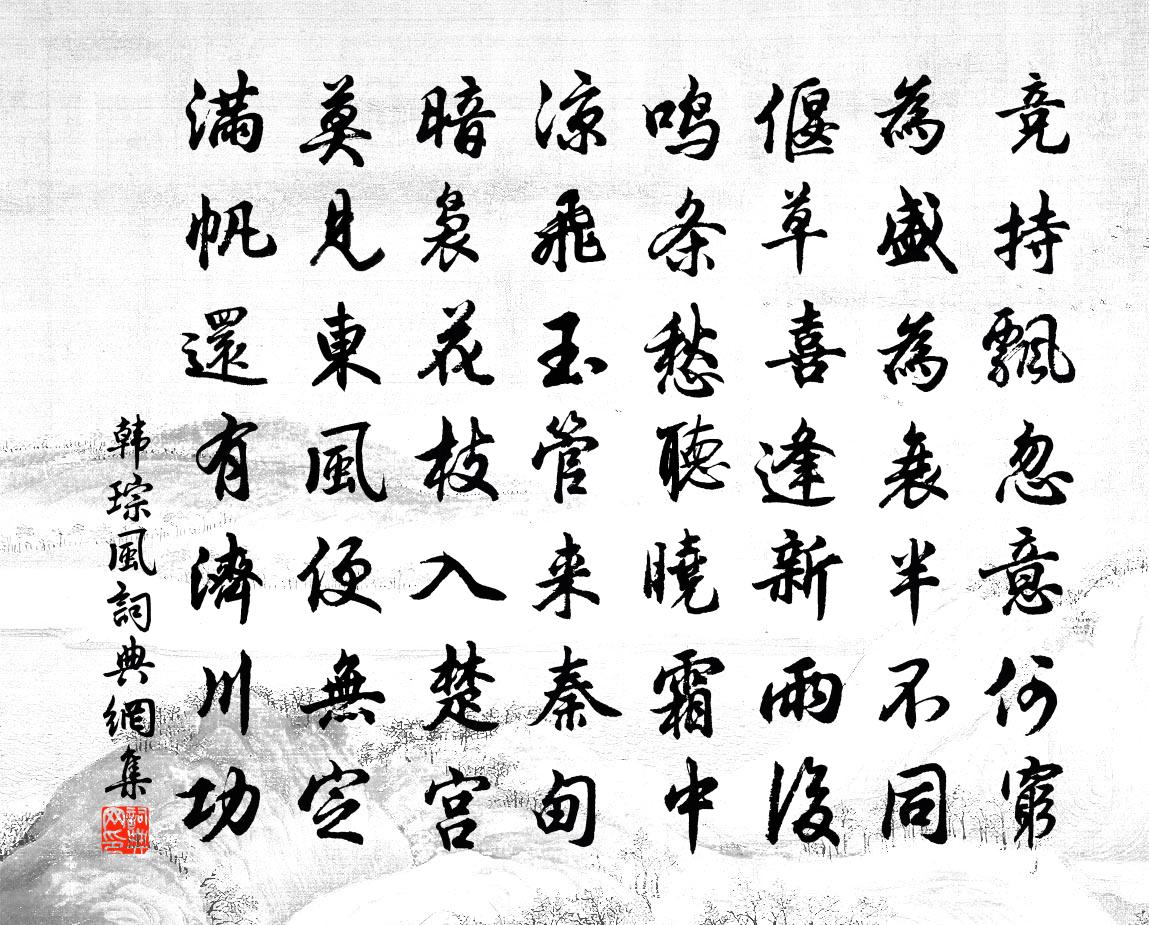 竞持飄忽意何窮
為盛為衰半不同
偃草喜逢新雨後
鳴条愁聽曉霜中
凉飛玉管来秦甸
暗裊花枝入楚宮
莫見東風便無定
滿帆還有濟川功
韩琮風詞典網集